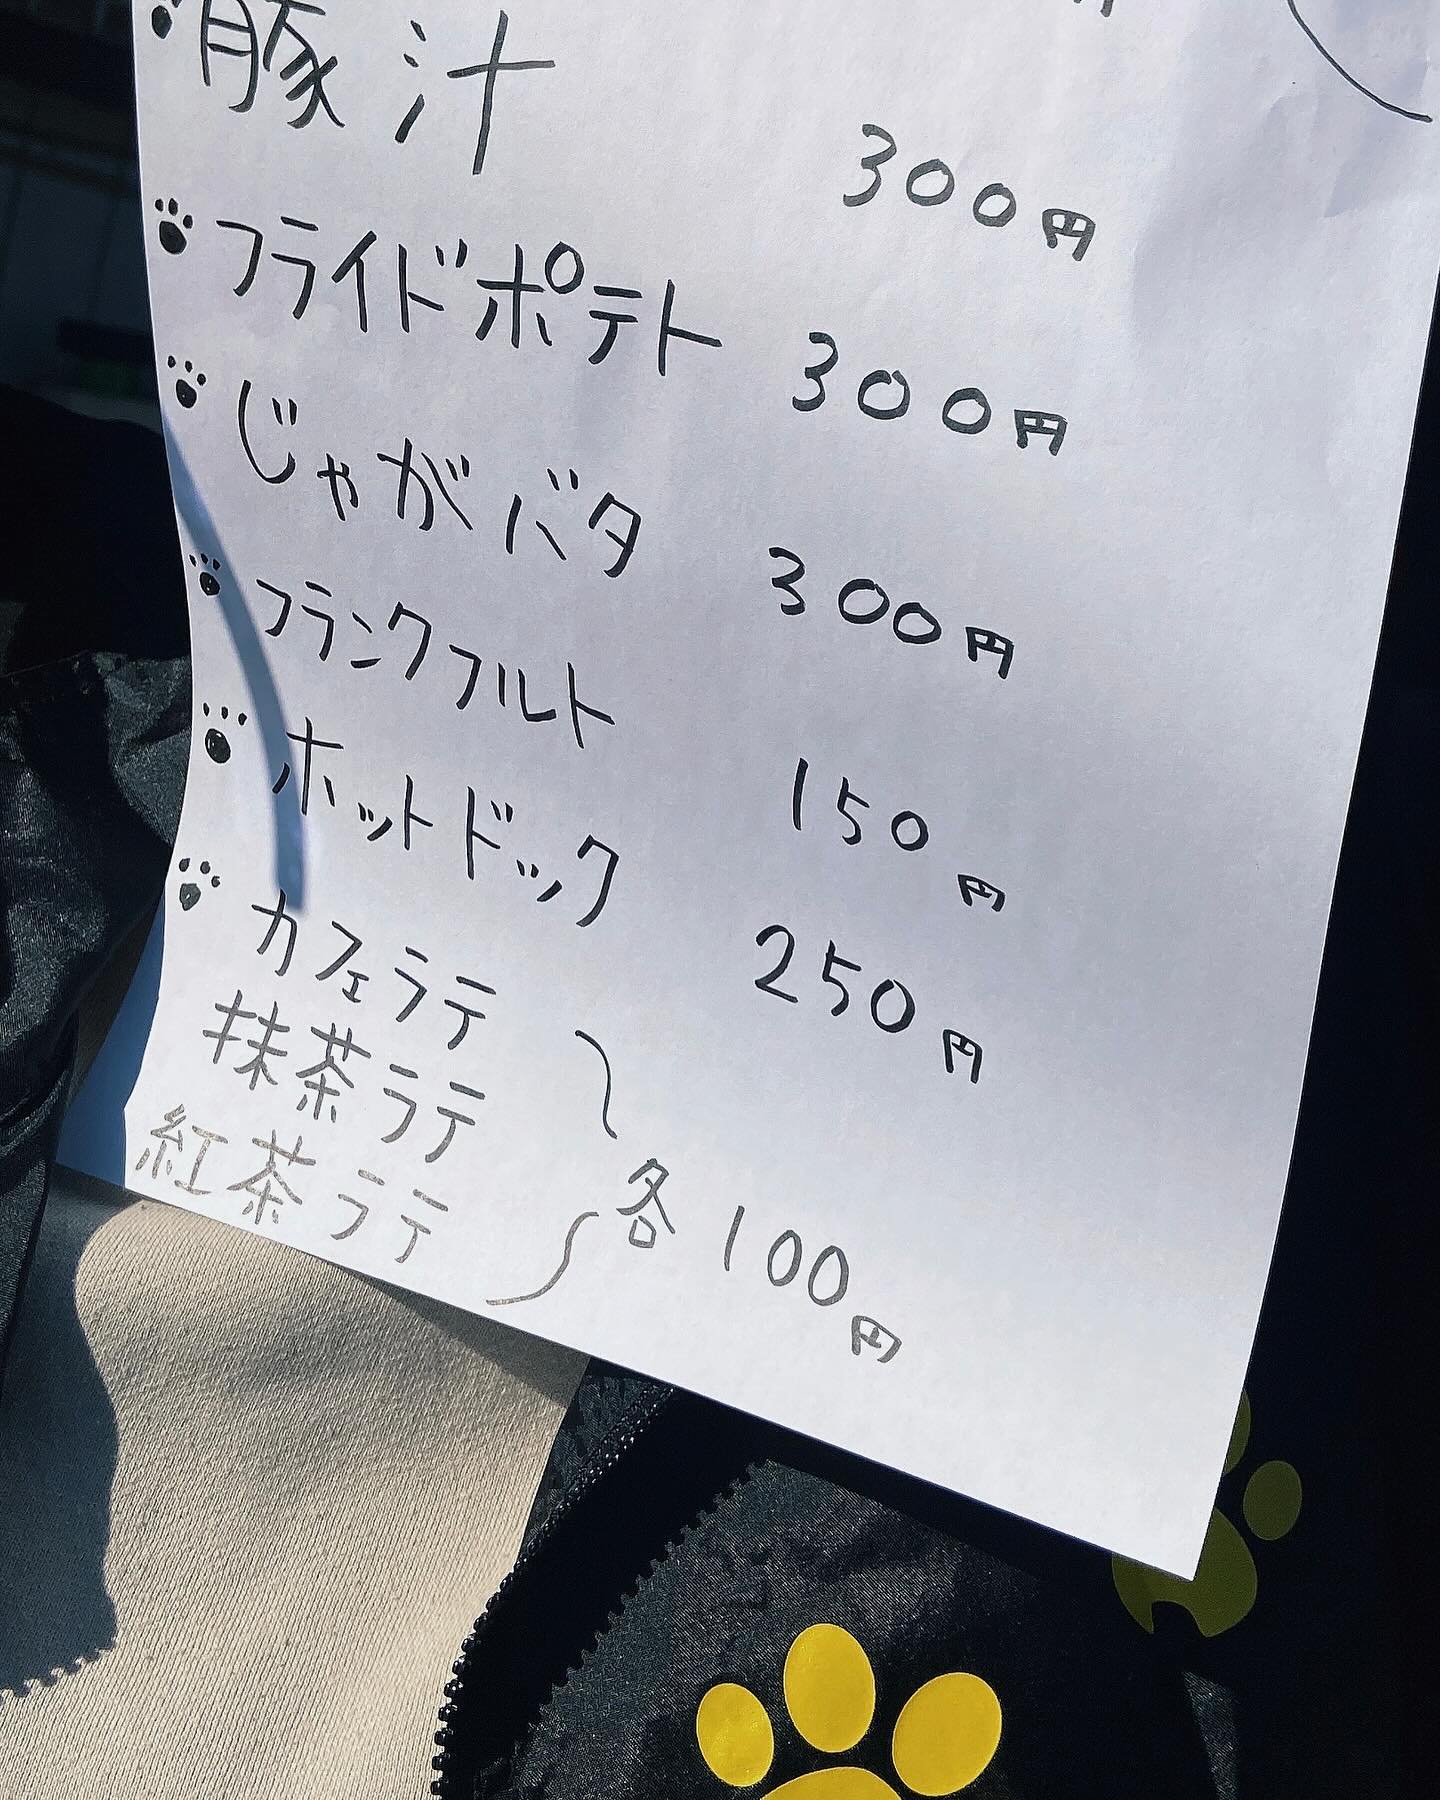 豚汁 300円
フライドポテト 300円
じゃがバタ 300円
フランクフルト 150円
ホットドック 250円
カフェラテ
抹茶ラテ
紅茶ラテ
各100円